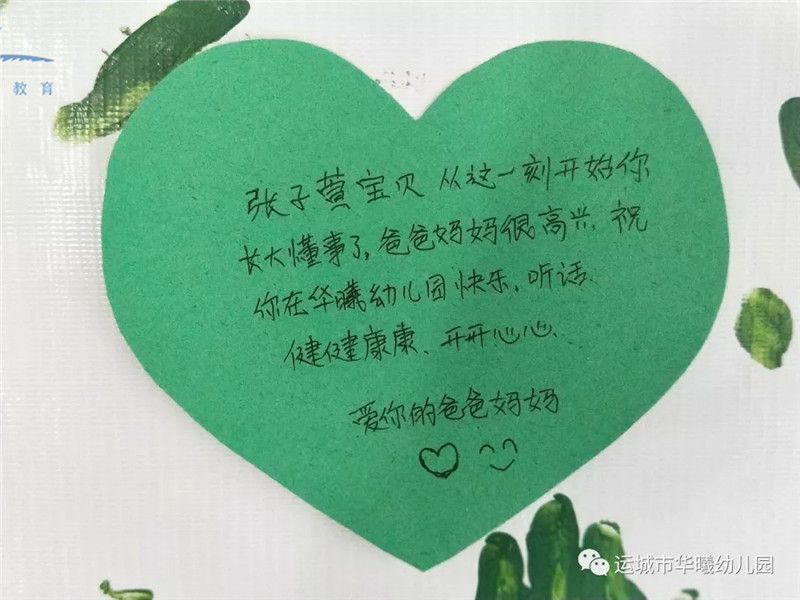 教育
张子萱宝贝 从这一刻开始你
长大懂事了,爸爸妈妈很高兴、祝
你在华曦幼儿园快乐、听话、
健健康康、开开心心、
爱你的爸爸妈妈
运城市华曦幼儿园